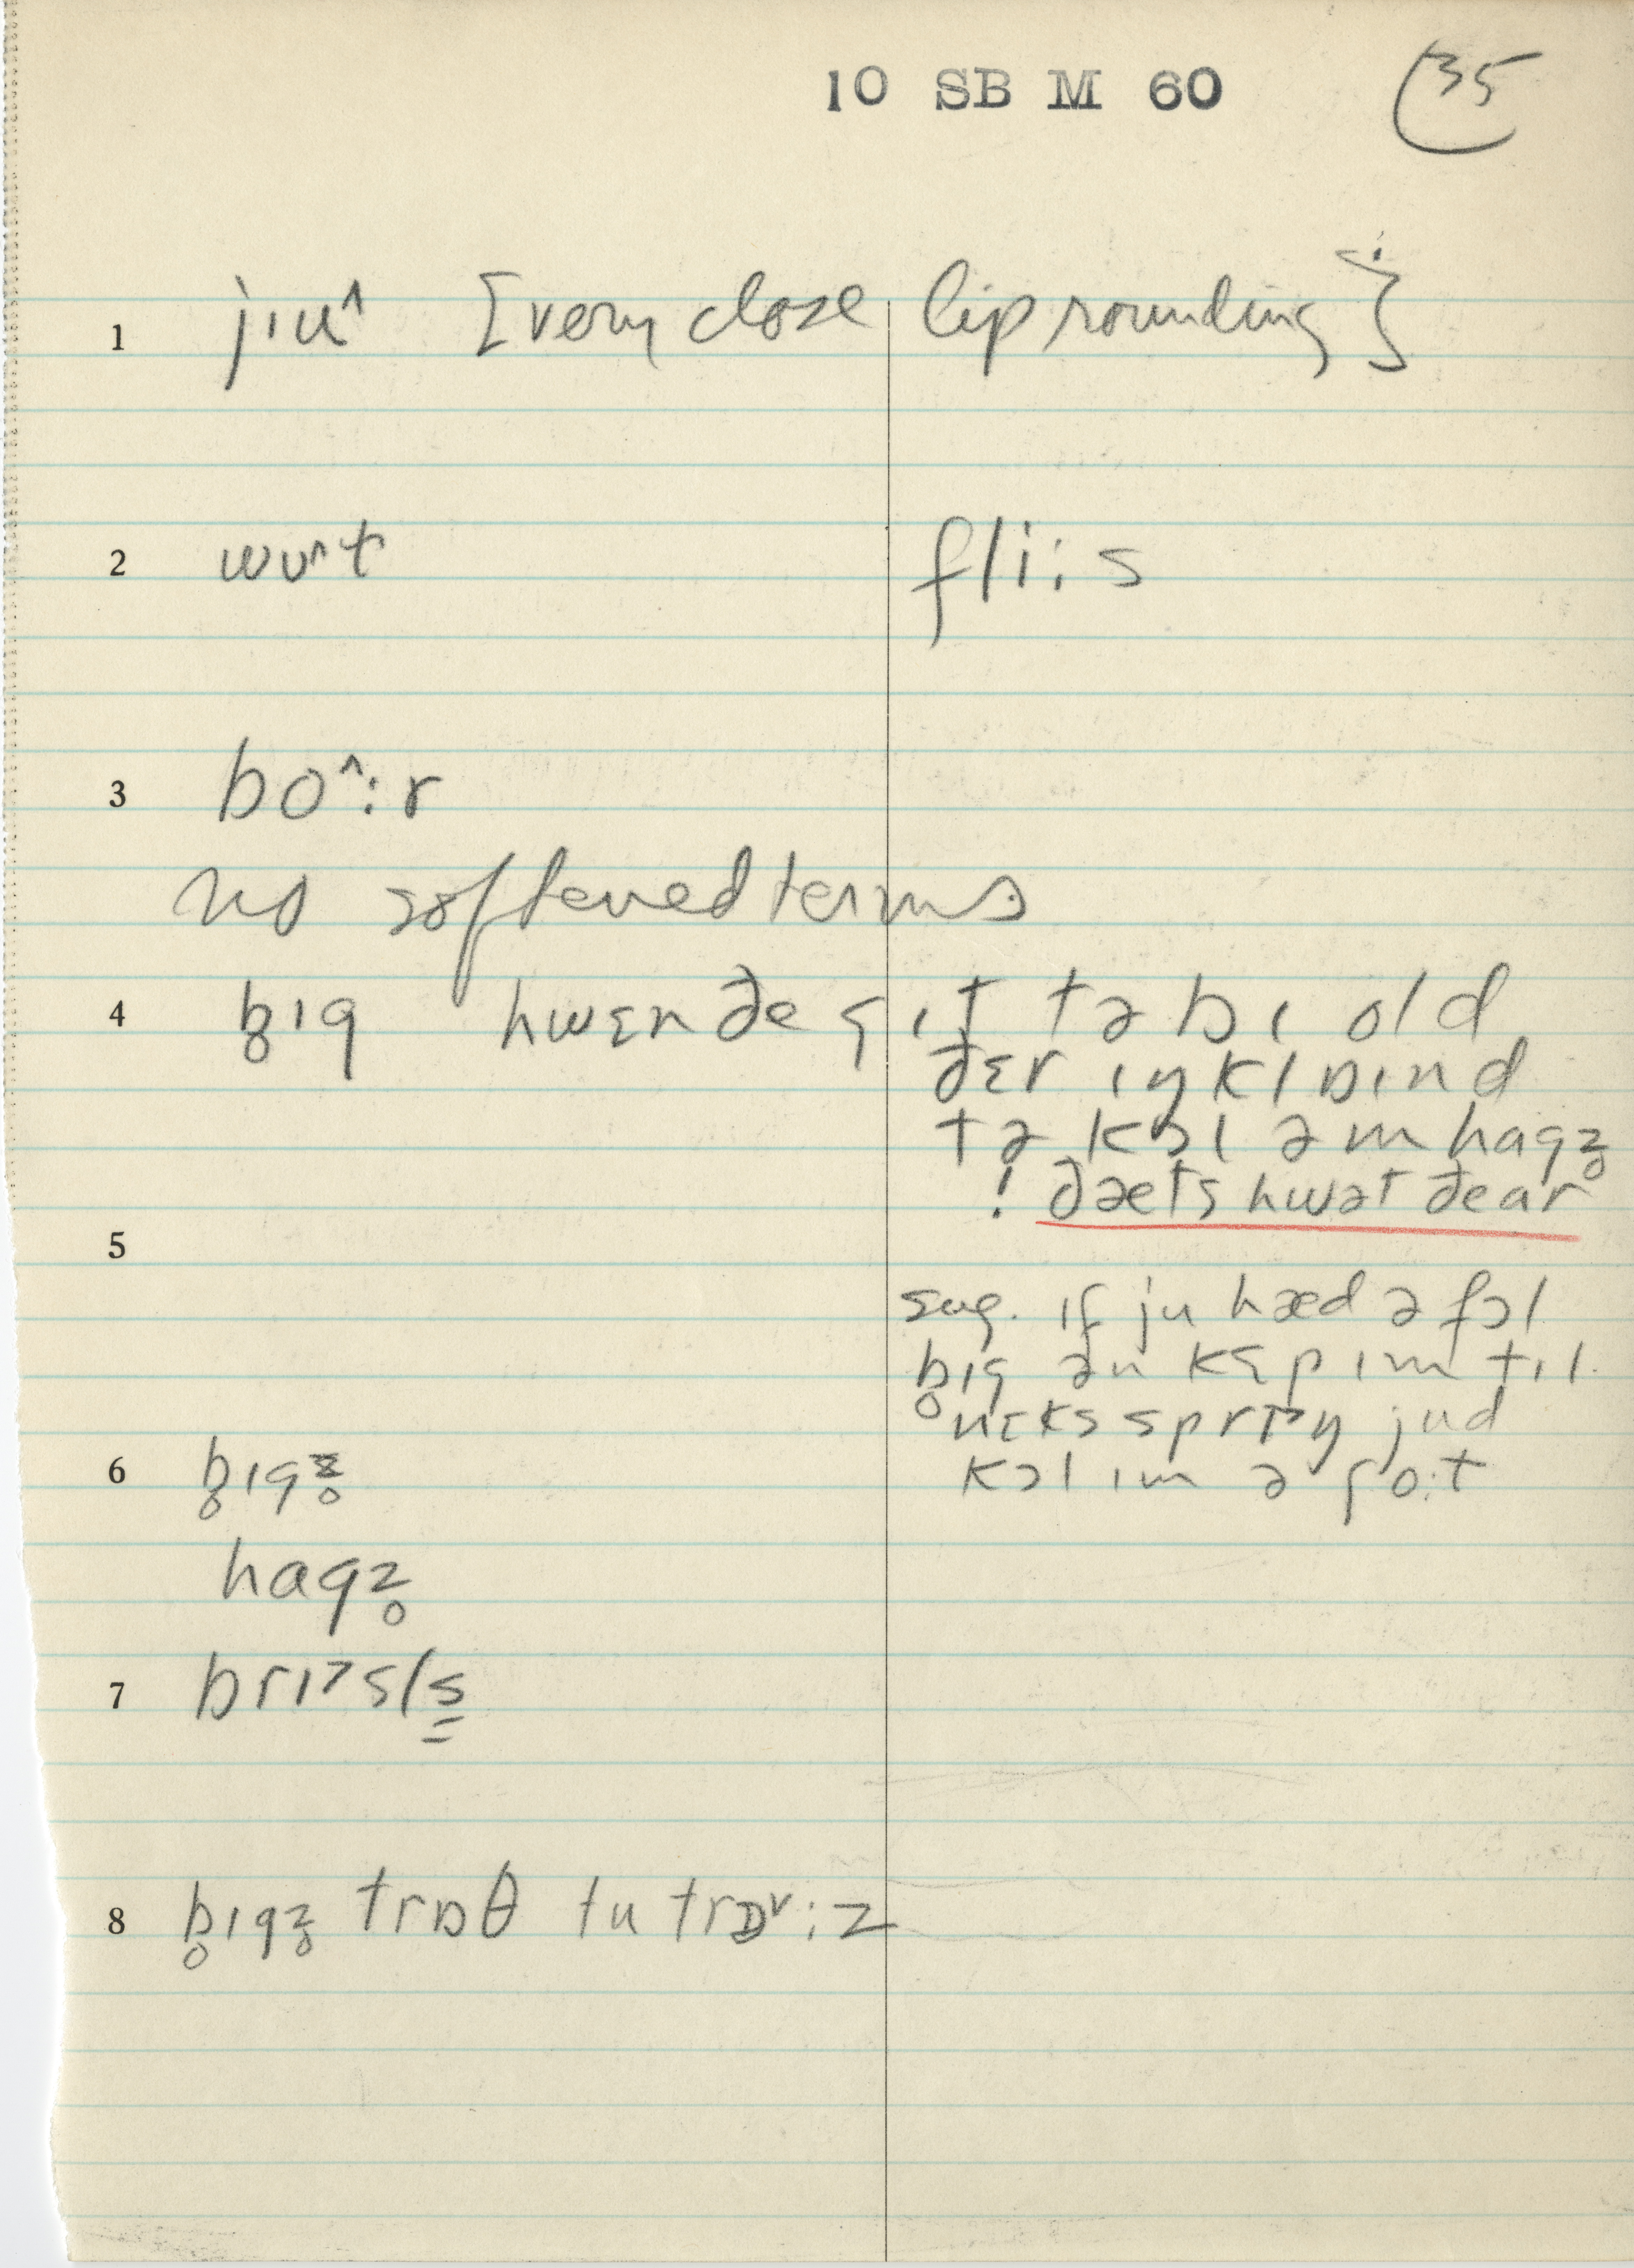 10 SB M 60
35
1 jɪu^ [very close lip rounding]
2 wʊ^t fli:s
3 bo^:r
no softened terms
4 b̥ɪg hwɛn ðe gɪt tə bɪ old
ðɛr ɪŋklɒɪnd
tə kɔl əm hagz̥
! ðæts hwət ðe ar
5
sug. ɪf ju hæd ə fɔl
b̥ɪg ən kɛp ɪm tɪl
nɛks sprɪ>ŋ jud
kɔl ɪm ə ʃo:t
6 b̥ɪgz̥
hagz̥
7 brɪ>sls̳
8 b̥ɪgz̥ trɒθ tu trɒ˅:z